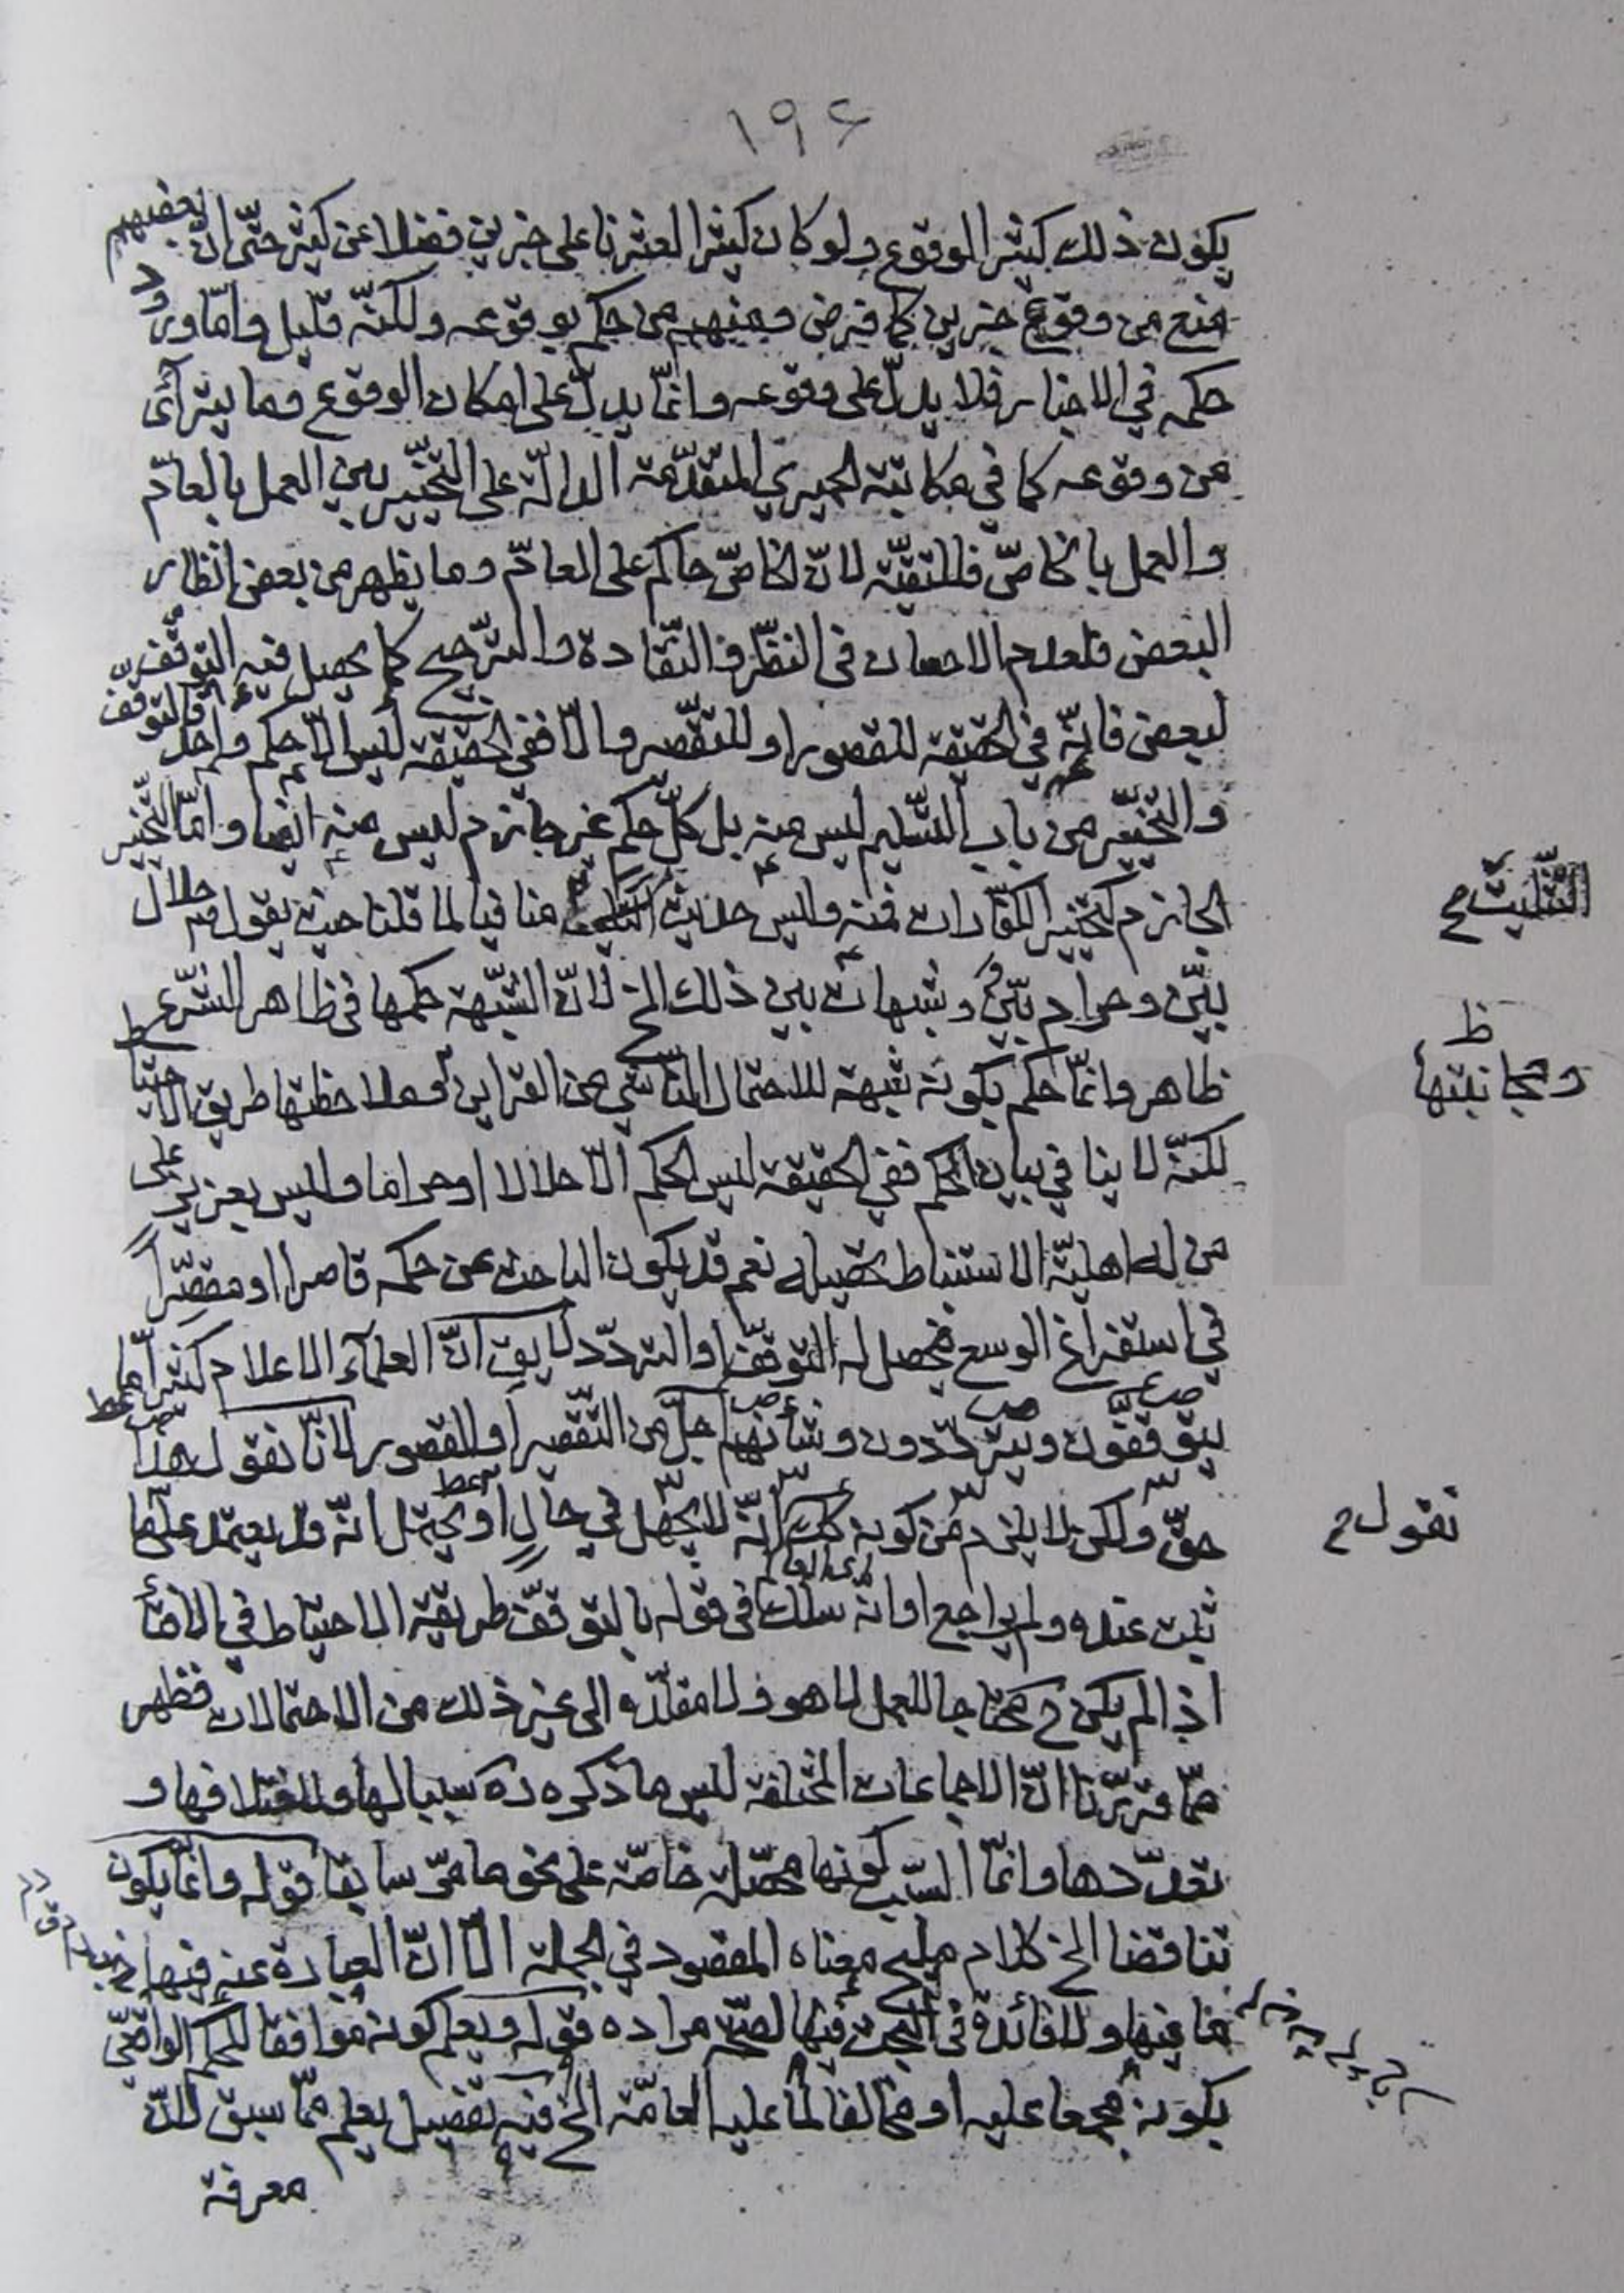 ١٩٤
يكون ذلك كثير الوقوع ولو كان كثيرا لعثرنا على خبرين فضلا عن كثير حتّى انّ بعضهم
منع من وقوع خبرين كما فرض ومنهم من حكم بوقوعه ولكنّه قليل وامّا ورود
حكمه في الاخبار فلا يدلّ على وقوعه وانّما يدلّ على امكان الوقوع وما يترآئى
من وقوعه كما في مكاتبة الحميري المتقدّمة الدالّة على التخيير بين العمل بالعامّ
والعمل بالخاصّ فللتقيّة لانّ الخاصّ حاكم على العامّ وما يظهر من بعض انظار
البعض فلعدم الامعان في النظر والنقادة والترجيح كما يحصل فيه التوقّف
لبعض فانّه في الحقيقة للقصور او للتقصير والّا ففي الحقيقة ليس الّا حكم واحد والتوقّف
والتخيير من باب التسليم ليس منه بل كلّ حكم غير جازم ليس منه ايضا وامّا التخيير
الجازم كتخيير الكفّارات فمنه وليس حديث منافيا لما قلنا حيث يقول فيه حلال
التثليث
بيّن وحرام بيّن وشبهات بين ذلك الخ لانّ الشبهة حكمها في ظاهر الشرع
ومجانبتها ظ
ظاهر وانّما حكم بكونه شبهة للاحتمال الناشي من القراين وملاحظتها طريق الاحتياط
لكنّه لا ينافي بيان الحكم ففي الحقيقة ليس الحكم الّا حلالا او حراما وليس بعزيز على
من له اهليّة الاستنباط تحصيله نعم قد يكون الباحث عن حكمه قاصرا او مقصّرا
في استفراغ الوسع فيحصل له التوقّف او التردّد لا يق انّ العلمآء الاعلام كثيرا ما
يتوقّفون ويتردّدون وشأنهم اجلّ من التقصير او القصور لانّا نقول هذا
حقّ ولكن لا يلزم من كونه انّه لا يجهل في حال او يحتمل انّه قد يعتمد على ما
نقول
ثبت عنده ولم يراجع او انّه سلك في قوله بالتوقّف طريقة الاحتياط في الافتآء
اذا لم يكن ح محتاجا للعمل لا هو ولا مقلّده الى غير ذلك من الاحتمالات فظهر
ممّا قرّرنا انّ الاجماعات المختلفة ليس ما ذكره ره سببا لها ولاختلافها و
تعدّدها وانّما السبب كونها محصّلة خاصّة على نحو ما مرّ سابقا قوله وانّما يكون
تناقضا الخ كلام مليح معناه المقصود في الجملة الّا انّ العبارة عنه فيها
ما فيها ولا فائدة في البحث فيها لصحّة مراده قوله ويعلم كونه موافقا للحكم الواقعيّ
بكونه مجمعا عليه او مخالفا لما عليه العامّة الخ فيه تفصيل يعلم ممّا سبق لانّ
معرفة